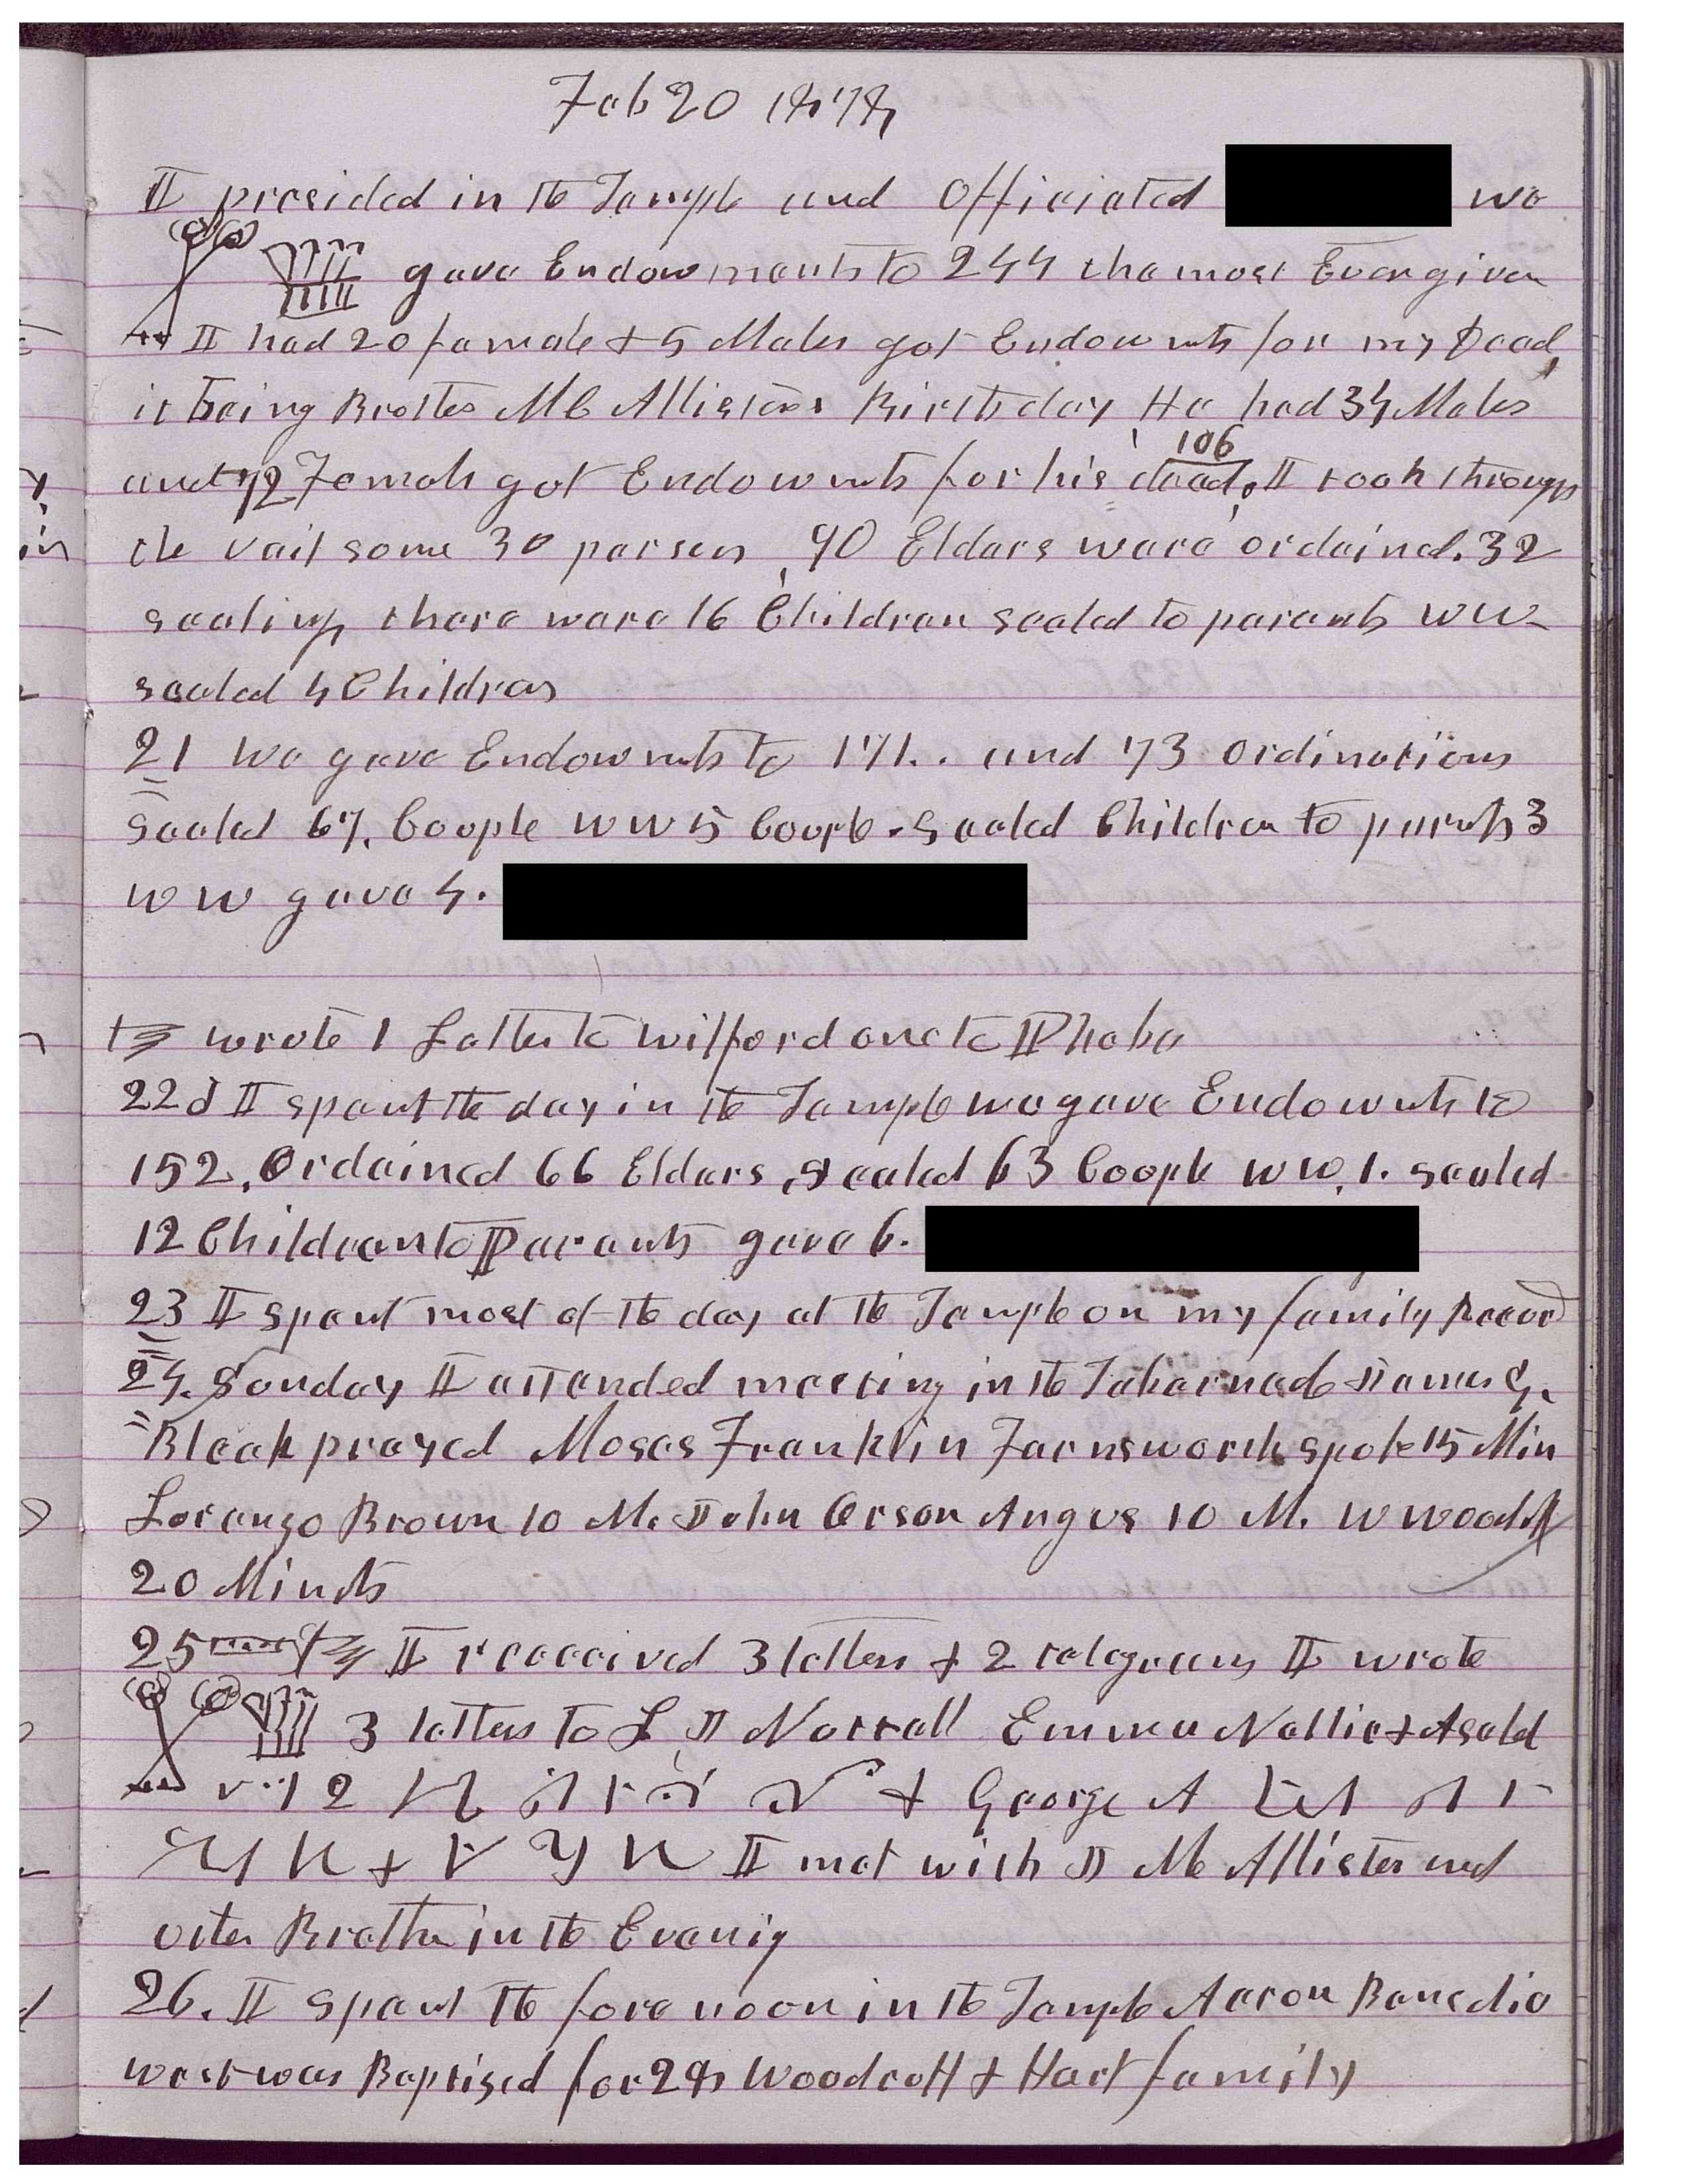 Feb 20 1878
I presided in the Temple and Officiated we
gave Endowments to 244 the most Ever given
I had 20 female & 5 Males got Endowmts for my Dead,
it being Brother Mc Allisters Birth day He had 34 Males
and 72 Female got Endowmts for his dead, 106 I took through
the vail some 30 person, 90 Elders were ordained. 32
sealings there were 16 Children sealed to parents WW
sealed 4 Children
21 We gave Endowmts to 171.. and 73 ordinations
Sealed 67. Coople WW 5 Coople. Sealed Children to parents 3
WW gave 4.
wrote 1 Letter to Wilford one to Phebe
22d I spent the day in the Temple we gave Endowmts to
152, Ordained 66 Elders, Sealed 63 Coople WW, 1. sealed
12 Children to Parents gave 6.
23 I spent most of the day at the Temple on my family Record
24. Sunday I attended meeting in the Tabernacle James G.
Bleak prayed Moses Franklin Farnsworth spoke 15 Min
Lorenzo Brown 10 M. John Orson Angus 10 M. W Woodruff
20 Minuts
25 I receeived 3 letters & 2 telegrams I wrote
3 letters to L J Nuttall Emma Nellie & Asahel
& George A
I met with J Mc Allister and
other Brothe in the Evenig
26. I spent the fore noon in the Temple Aaron Benedic
west was Baptised for 28 Woodcott & Hart family